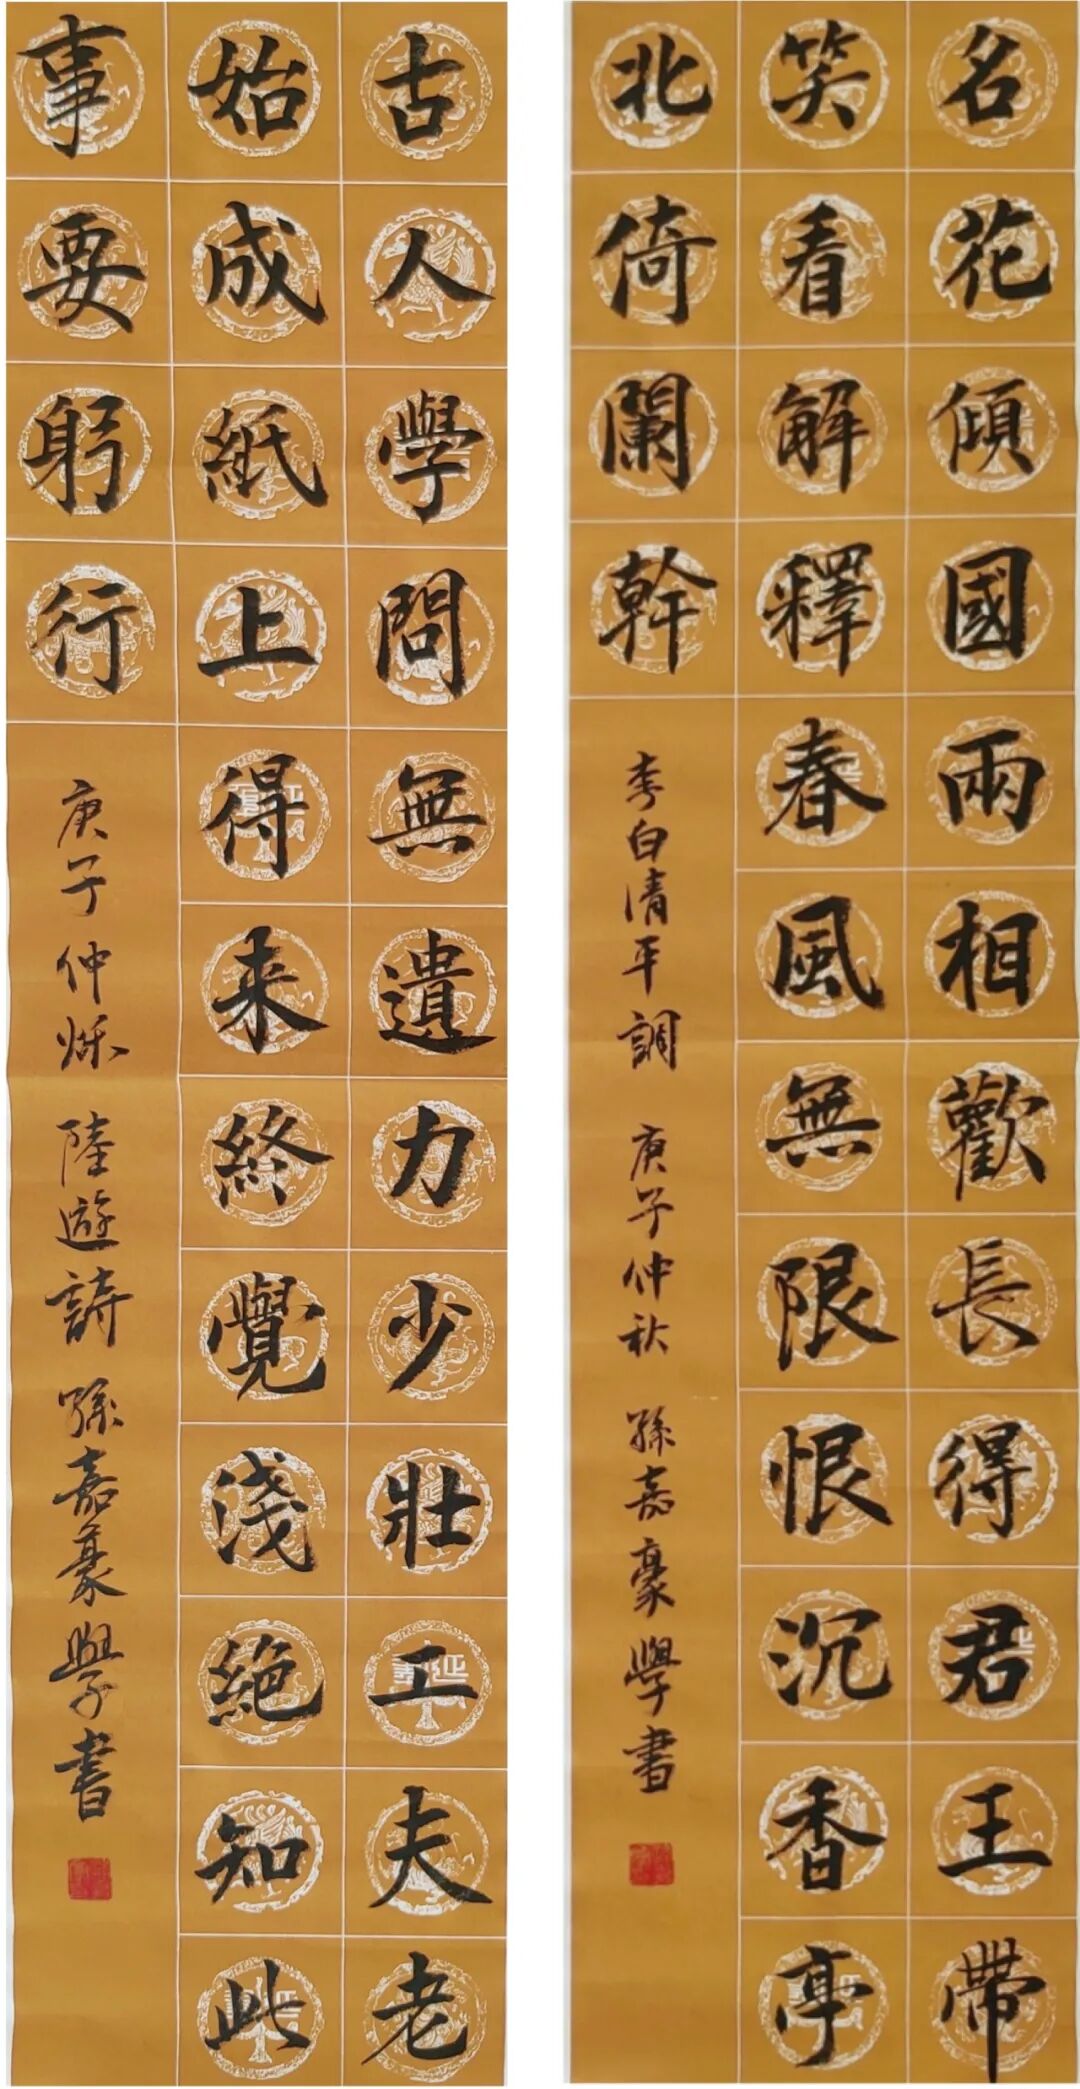 名花傾國兩相歡長得君王帶
笑看解釋春風無限恨沉香亭
北倚闌幹
李白清平調 庚子仲秋 孫嘉豪學書
古人學問無遺力少壯工夫老
始成紙上得来終覺淺絕知此
事要躬行
庚子仲秌 陸遊詩 孫嘉豪學書